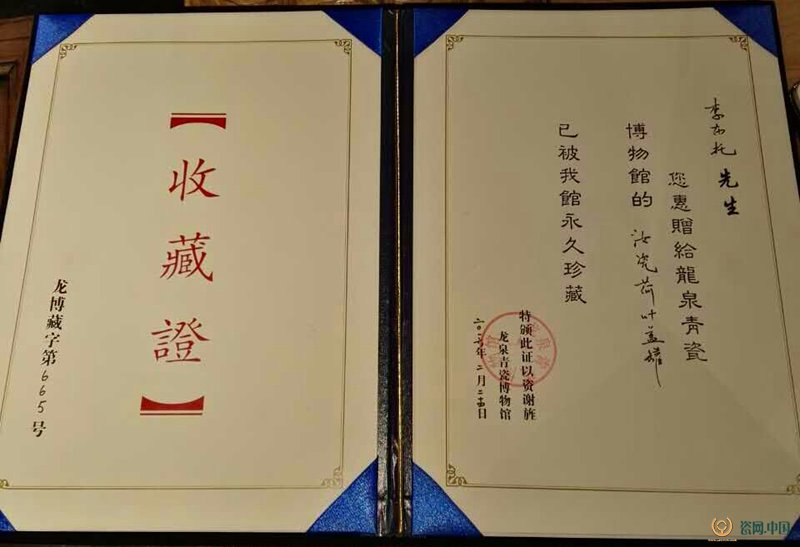 【收藏證】
龙博藏字第665号
李 托 先生
您惠贈給龍泉青瓷
博物館的 汝瓷荷叶盖罐
已被我館永久珍藏
特颁此证以资谢旌
龙泉青瓷博物馆
二〇 年二月 日
瓷网.中国